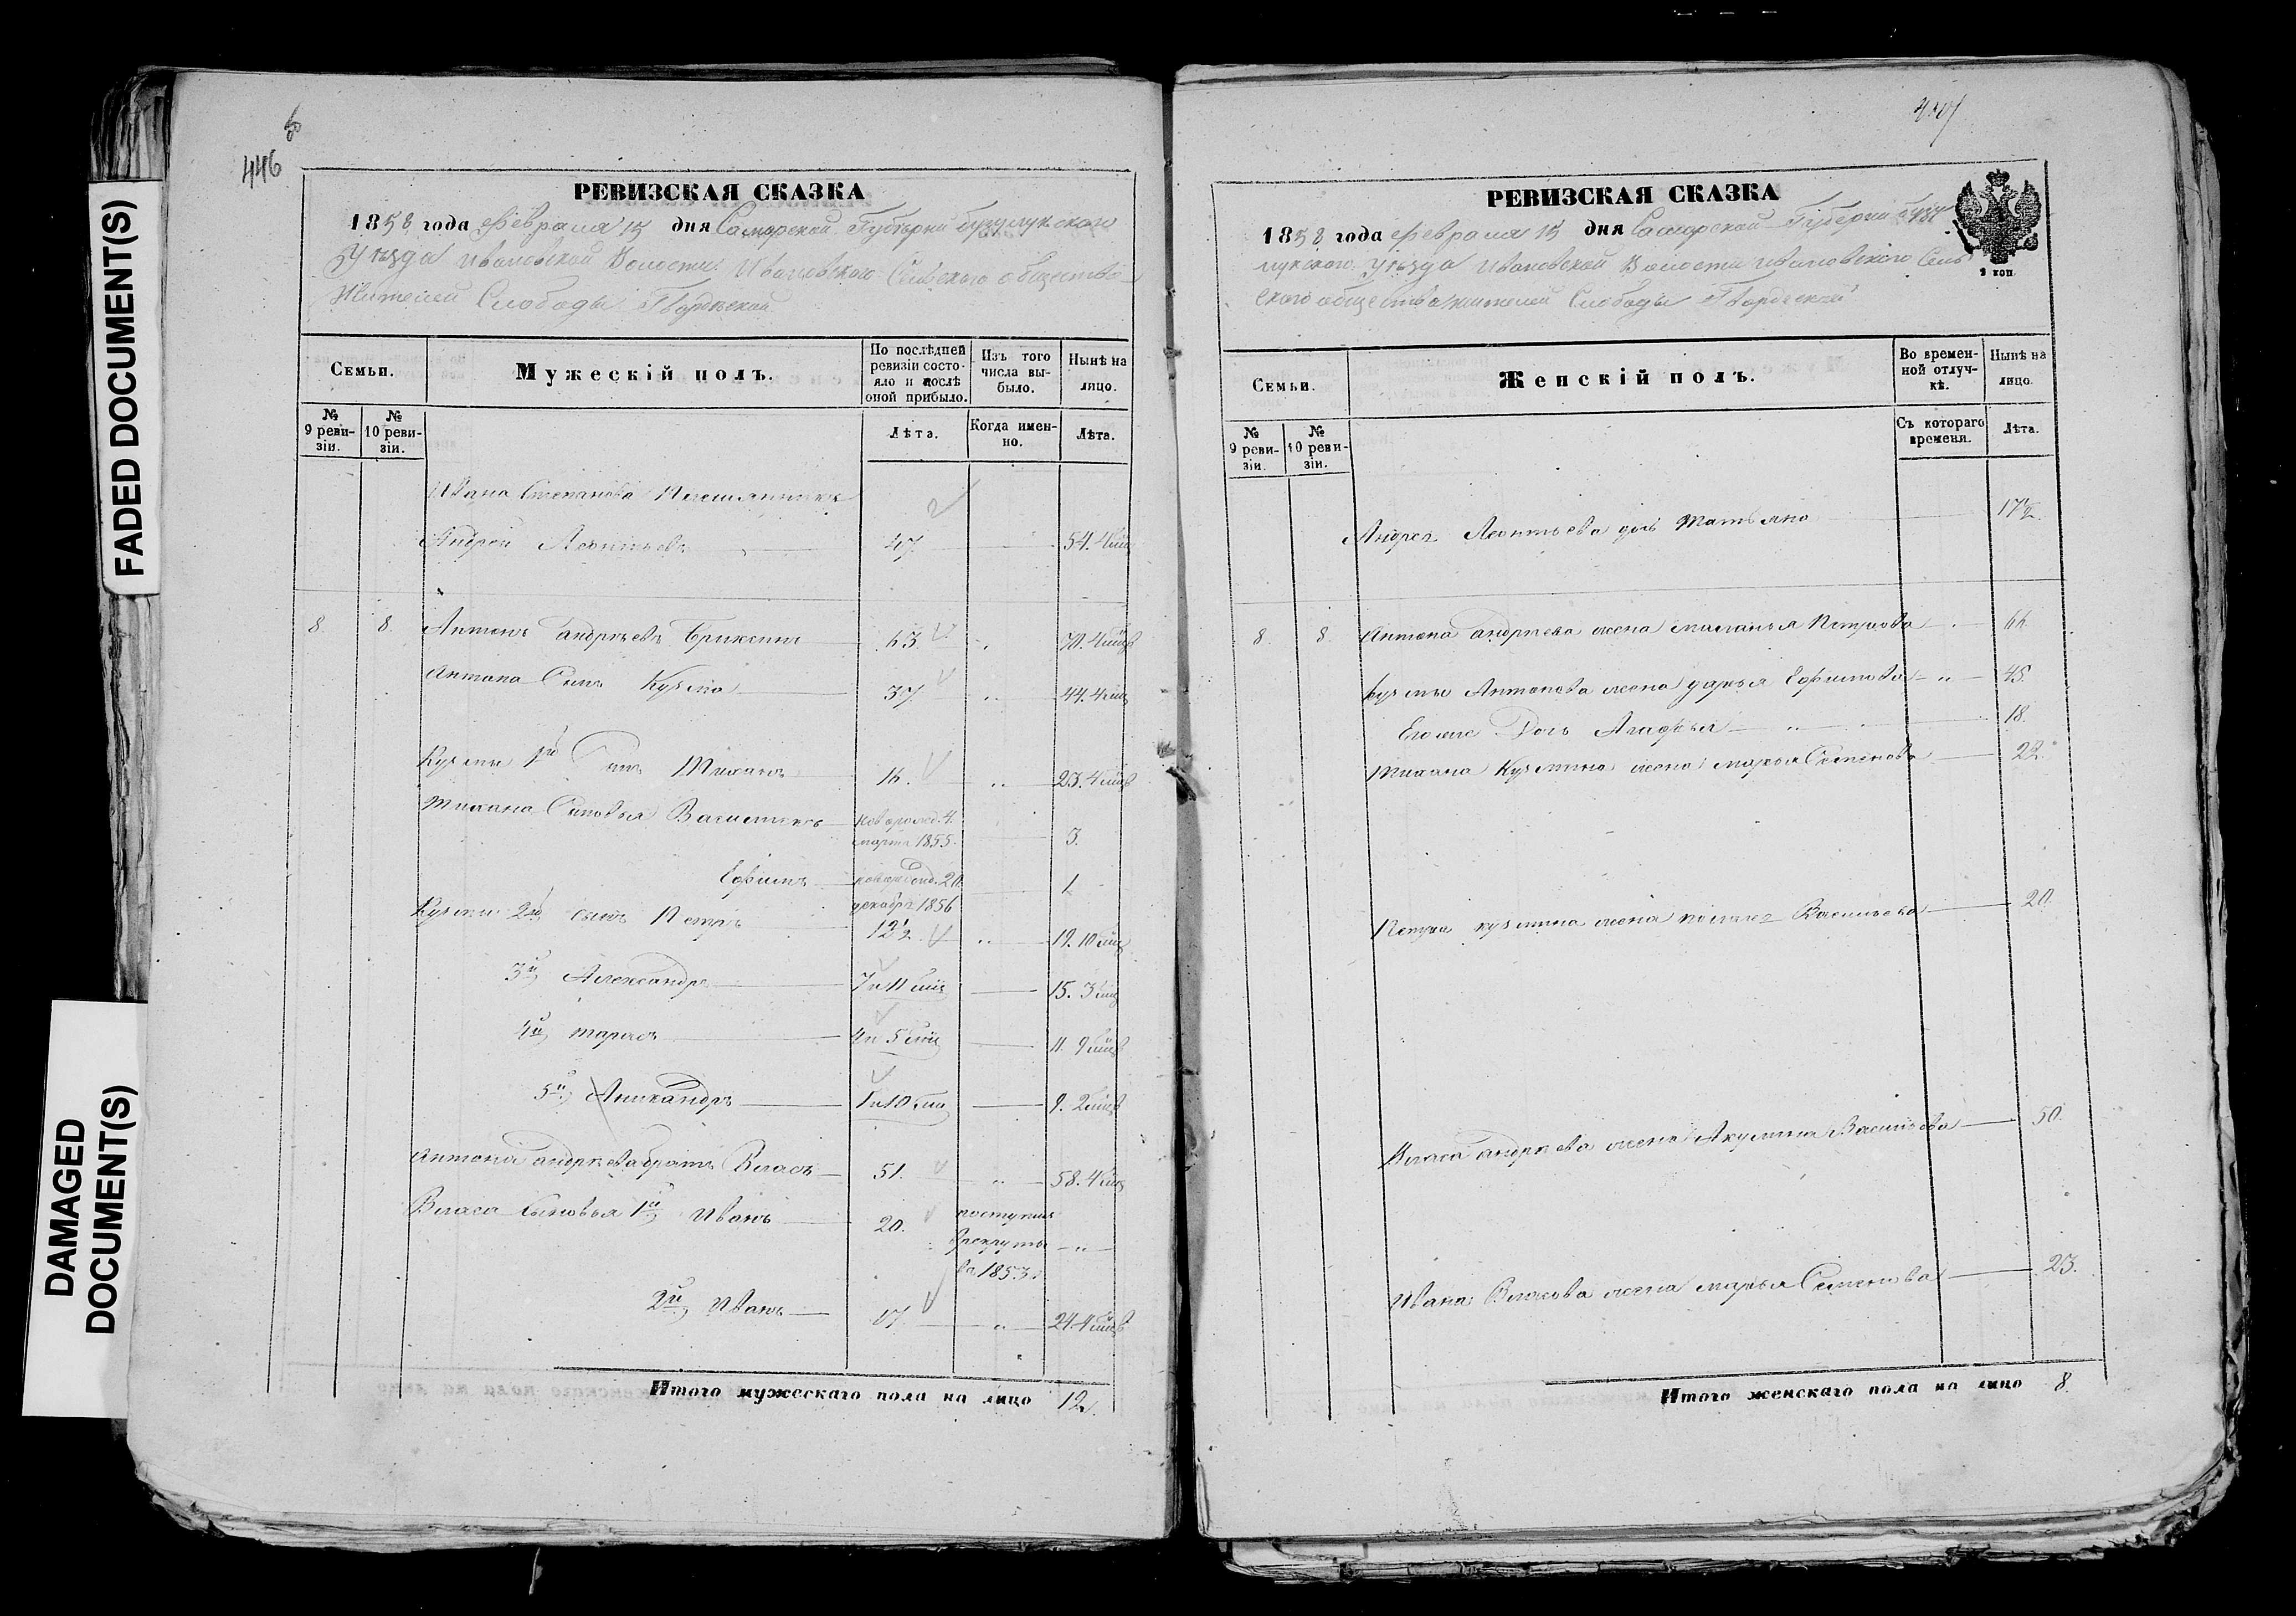 FADED DOCUMENT(S)
DAMAGED
DOCUMENT(S)
446
РЕВИЗСКАЯ СКАЗКА
1858 года Февраля 15 дня Самарской Губернии Бузулукского
Уезда Ивановской Волости Ивановского Сельского общества
Жителей Слободы Гвардейской
Семьи.
Мужескій полъ.
По послѣдней
ревизіи состо-
яло и послѣ
оной прибыло.
Изъ того
числа вы-
было.
Нынѣ на
лицо.
№
9 реви-
зіи.
№
10 реви-
зіи.
Лѣта.
Когда имен-
но.
Лѣта.
Ивана Степанова Племянникъ
Андрей Леонтьевъ 47 54. 4
8. 8. Антонъ Андреевъ 63 70. 4
Антона Сынъ Кузма 37 44. 4
Кузмы 1й Сынъ Тихонъ 16. 23. 4
Тихона Сыновья Василей новорожд. 4.
марта 1855. 3.
Ефимъ новорожд. 20
декабря 1856 1
Кузмы 2й сынъ Петръ 12½ 19. 10
3й Александръ 7 и 11 15. 3
4й Тарасъ 4 и 5 11. 9
5й Никандръ 1 и 10 9. 2
Антона Андреева братъ Власъ 51. 58. 4
Власа Сыновья 1й Иванъ 20. поступил
в рекруты
в 1853
2й Иванъ 17. 24 4
Итого мужескаго пола на лицо 12.
РЕВИЗСКАЯ СКАЗКА
1858 года Февраля 15 дня Самарской Губернии Бузу
лукского Уезда Ивановской Волости Ивановского Сель
ского общества жителей Слободы Гвардейской
2 коп.
Семьи.
Женскій полъ.
Во времен-
ной отлуч-
кѣ.
Нынѣ на
лицо.
№
9 реви-
зіи.
№
10 реви-
зіи.
Съ котораго
времени.
Лѣта.
Андрея Леонтьева дочь Татьяна 17½
8. 8. Антона Андреева жена Маланья Петрова 66
Кузмы Антонова жена Дарья Ефимова 45.
Его же Дочь Агафья 18.
Тихона Кузмина жена Марья Семенова 22.
Петра Кузмина жена Васильева 20.
Власа Андреева жена Акулина Васильева 50.
Ивана Власова жена Марья Семенова 23.
Итого женскаго пола на лицо 8.